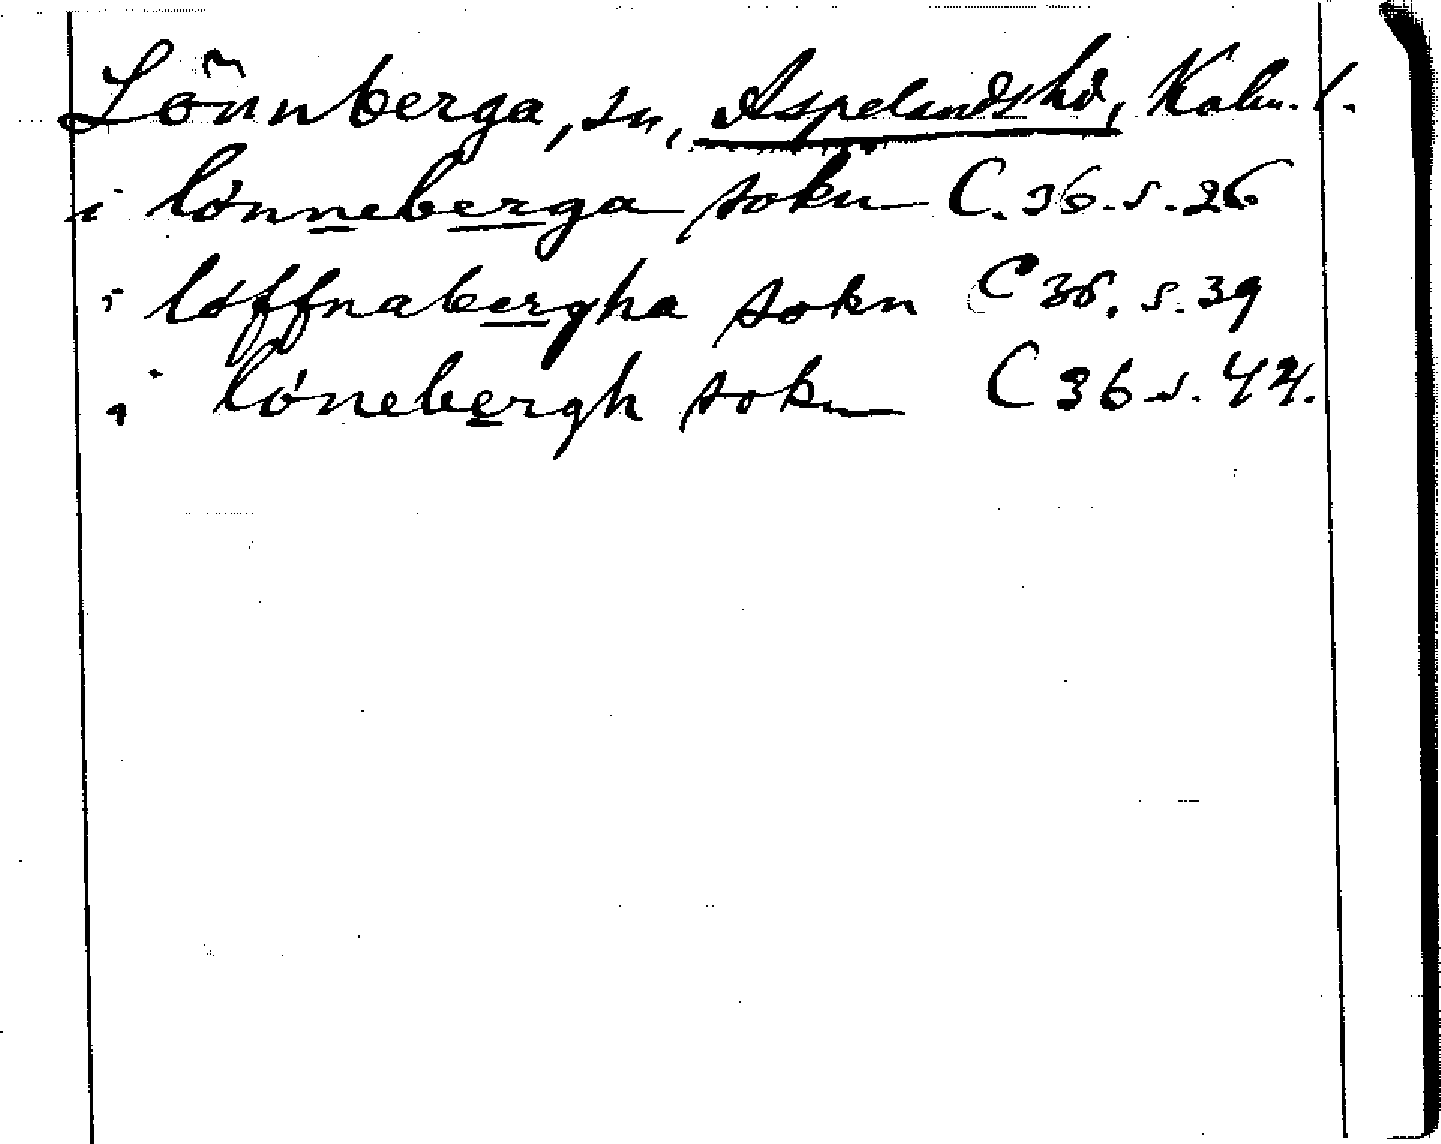 Lönnberga, sn, Aspelands hd, Kalm. l.
i lónneberga sokn C. 36. s. 26
i lóffnabergha sokn C 36. s. 39
i lónebergh sokn C 36 s. 42.